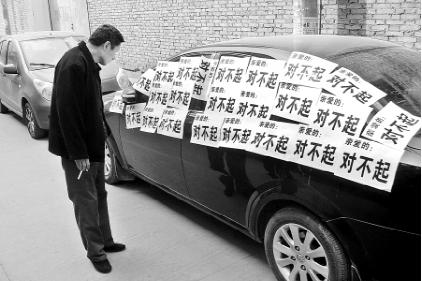 亲爱的：
对不起
亲爱的：
对不起
亲爱的：
对不起
亲爱的：
对不起
亲爱的：
对不起
亲爱的：
对不起
亲爱的：
对不起
亲爱的：
对不起
亲爱的：
对不起
亲爱的：
对不起
亲爱的：
对不起
亲爱的：
对不起
亲爱的：
对不起
亲爱的：
对不起
亲爱的：
对不起
亲爱的：
对不起
亲爱的：
对不起
亲爱的：
对不起
亲爱的：
对不起
亲爱的：
对不起